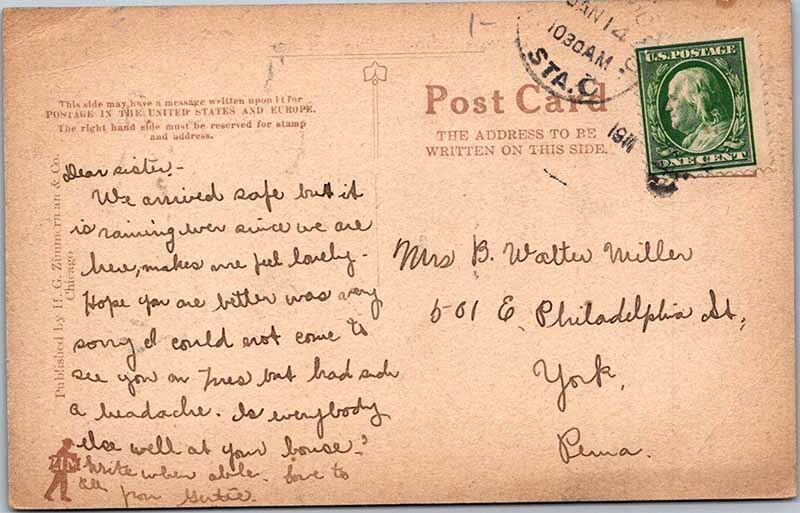 1-
JAN 14
1030 AM
STA. C
1911
U.S. POSTAGE
ONE CENT
This side may have a message written upon it for
POSTAGE IN THE UNITED STATES AND EUROPE.
The right hand side must be reserved for stamp
and address.
Post Card
THE ADDRESS TO BE
WRITTEN ON THIS SIDE.
Published by H. G. Zimmerman & Co.
Chicago
Dear sister-
We arrived safe but it
is raining ever since we are
here, makes me feel lonely-
Hope you are better was very
sorry I could not come to
see you on Tues but had such
a headache. Is everybody
else well at your house?
Write when able. Love to
all from Gertie.
ZIM
Mrs B. Walter Miller
501 E. Philadelphia St,
York,
Penna.